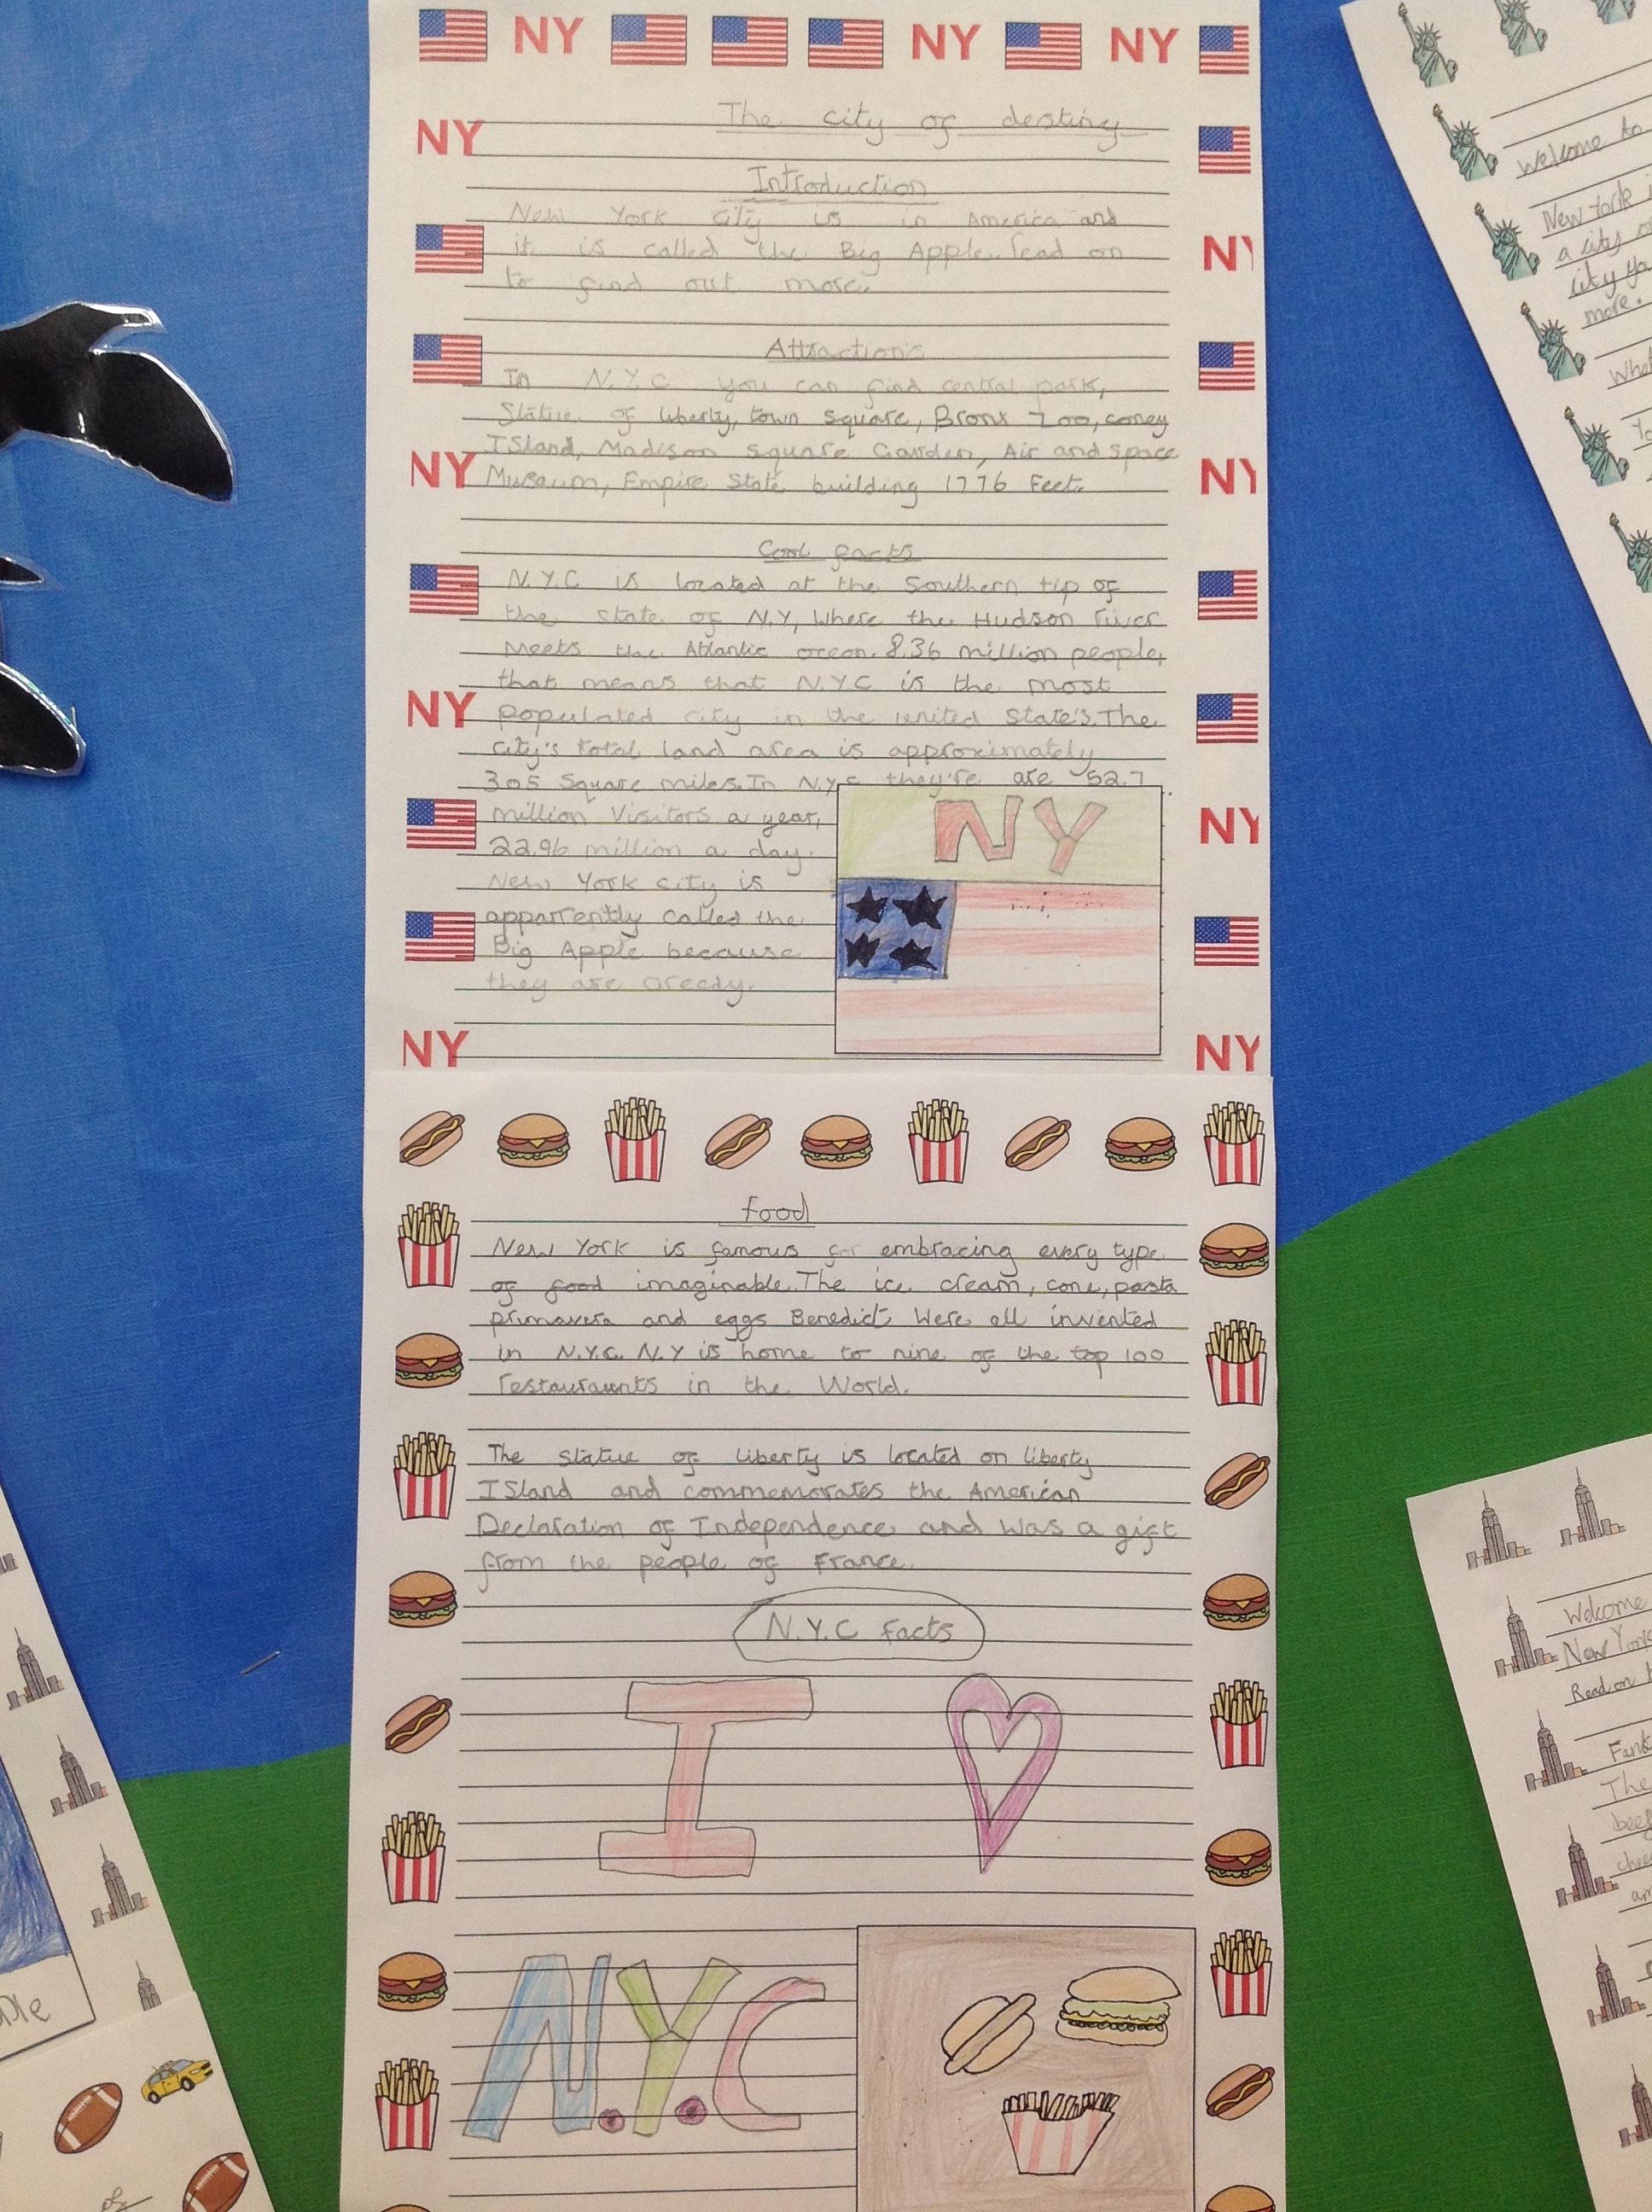 NY NY NY
The city of destiny
NY
Introduction
New York city is in America and
it is called the Big Apple. read on
NY
to find out more.
Attraction's
In N.Y.C you can find central park,
Statue of liberty, town square, Bronx Zoo, coney
ISland, Madison square Garden, Air and Space
NY NY
Museum, Empire State building 1776 Feet.
Cool facts
N.Y.C is located at the Southern tip of
the state of N.Y, Where the Hudson river
Meets the Atlantic ocean. 8.36 million people,
that means that N.Y.C is the most
NY
populated city in the united State's. The
city's total land area is approximately
305 Square miles. In N.Y.C they're are 52.7
million Visitors a year,
NY
NY
22.96 million a day.
New York city is
apparrently called the
Big Apple because
they are Greedy.
NY NY
food
New York is famous for embracing every type
of food imaginable. The ice cream, cone, pasta
primavera and eggs Benedict Were all invented
in N.Y.C. N.Y is home to nine of the top 100
restauraunts in the World.
The statue of liberty is located on liberty
ISland and commemorates the American
Declaration of Independence and Was a gift
from the people of France.
N.Y.C Facts
I
N.Y.C
Welcome to
New York i
a city o
city yo
more.
What
Yo
Welcome
New York
Read on t
Fant
The
beef
chee
am